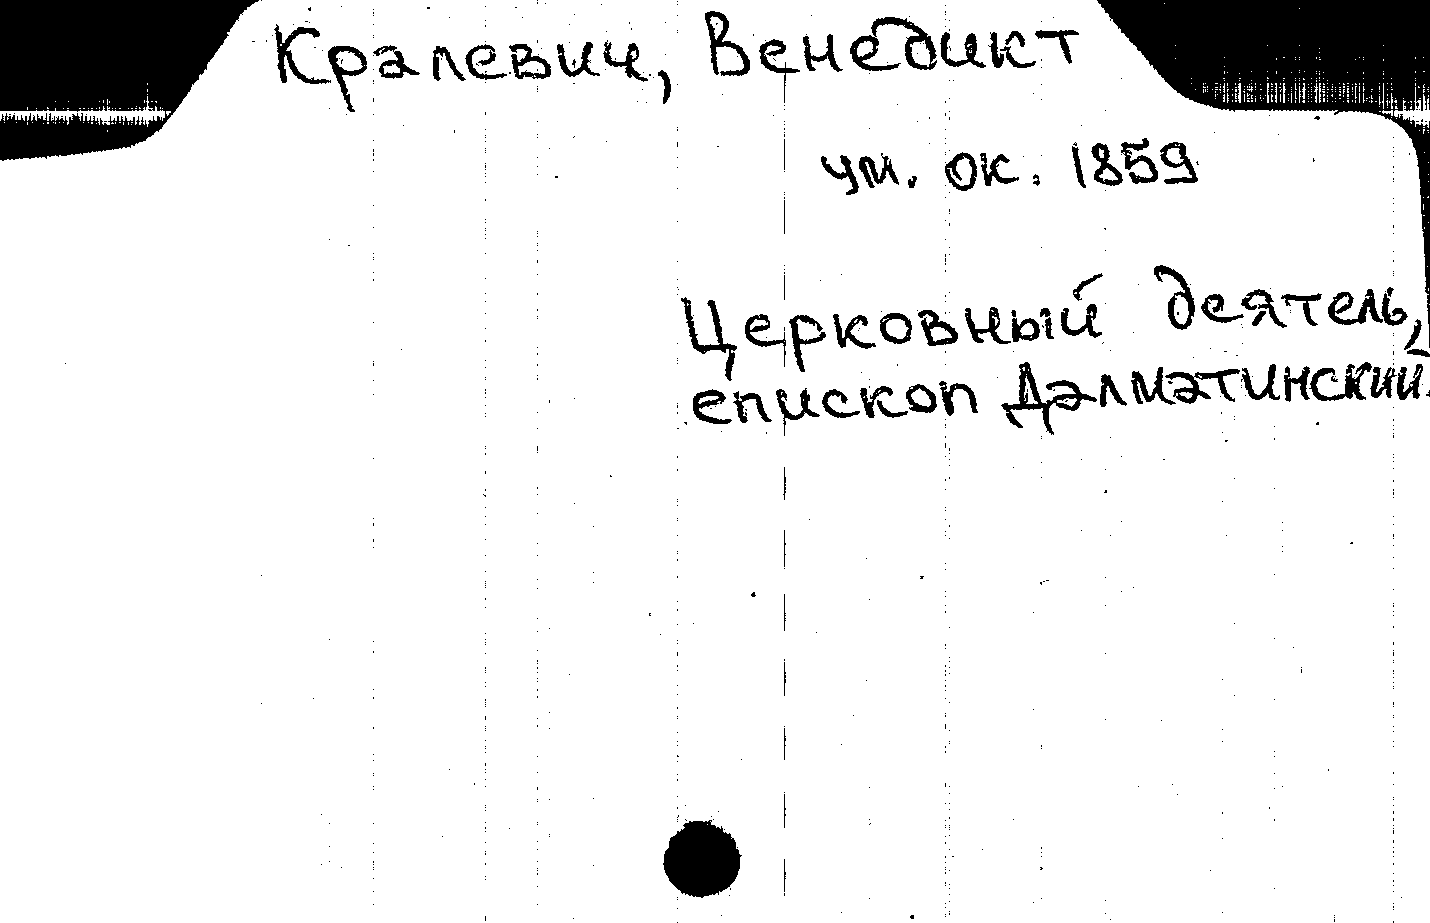 Кралевич, Венедикт
ум. ок. 1859
Церковный деятель,
епископ Далматинский.